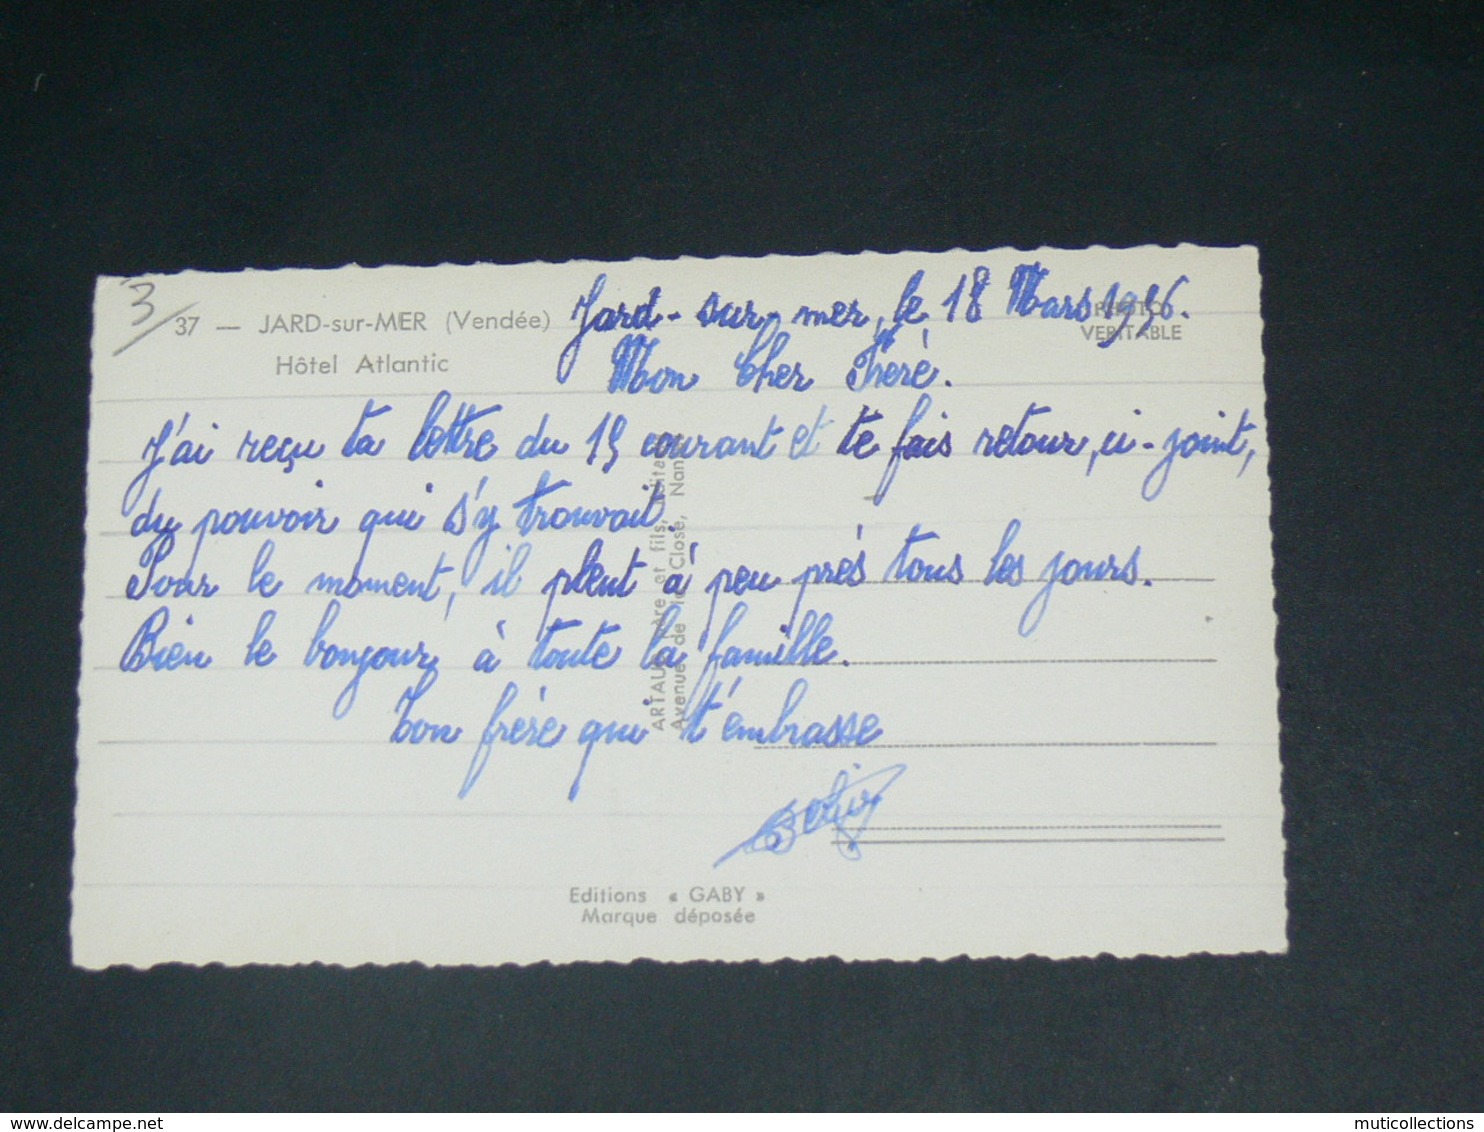 3/
37 — JARD-sur-MER (Vendée)
Hôtel Atlantic
PHOTO
VERITABLE
Jard-sur-mer, le 18 Mars 1956.
Mon Cher Frère.
J'ai reçu ta lettre du 15 courant et te fais retour, ci-joint,
du pouvoir qui s'y trouvait.
Pour le moment, il pleut à peu près tous les jours.
Bien le bonjour à toute la famille.
Ton frère qui t'embrasse
ARTAUD père et fils,
Avenue de la Close,
Editions « GABY »
Marque déposée
www.delcampe.net
muticollections